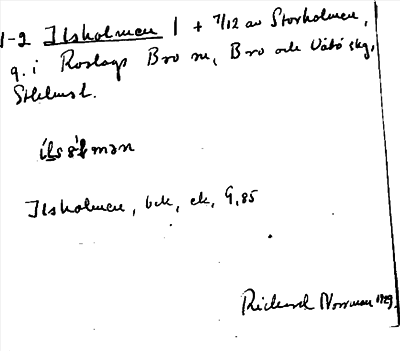 1-2 Ilsholmen 1 + 7/12 av Storholmen,
g. i Roslags Bro sn, Bro och Vätö skg,
Sthlms l.
Ilsholmen, bek, ek, G, 85
Rickard Norrman 1929.